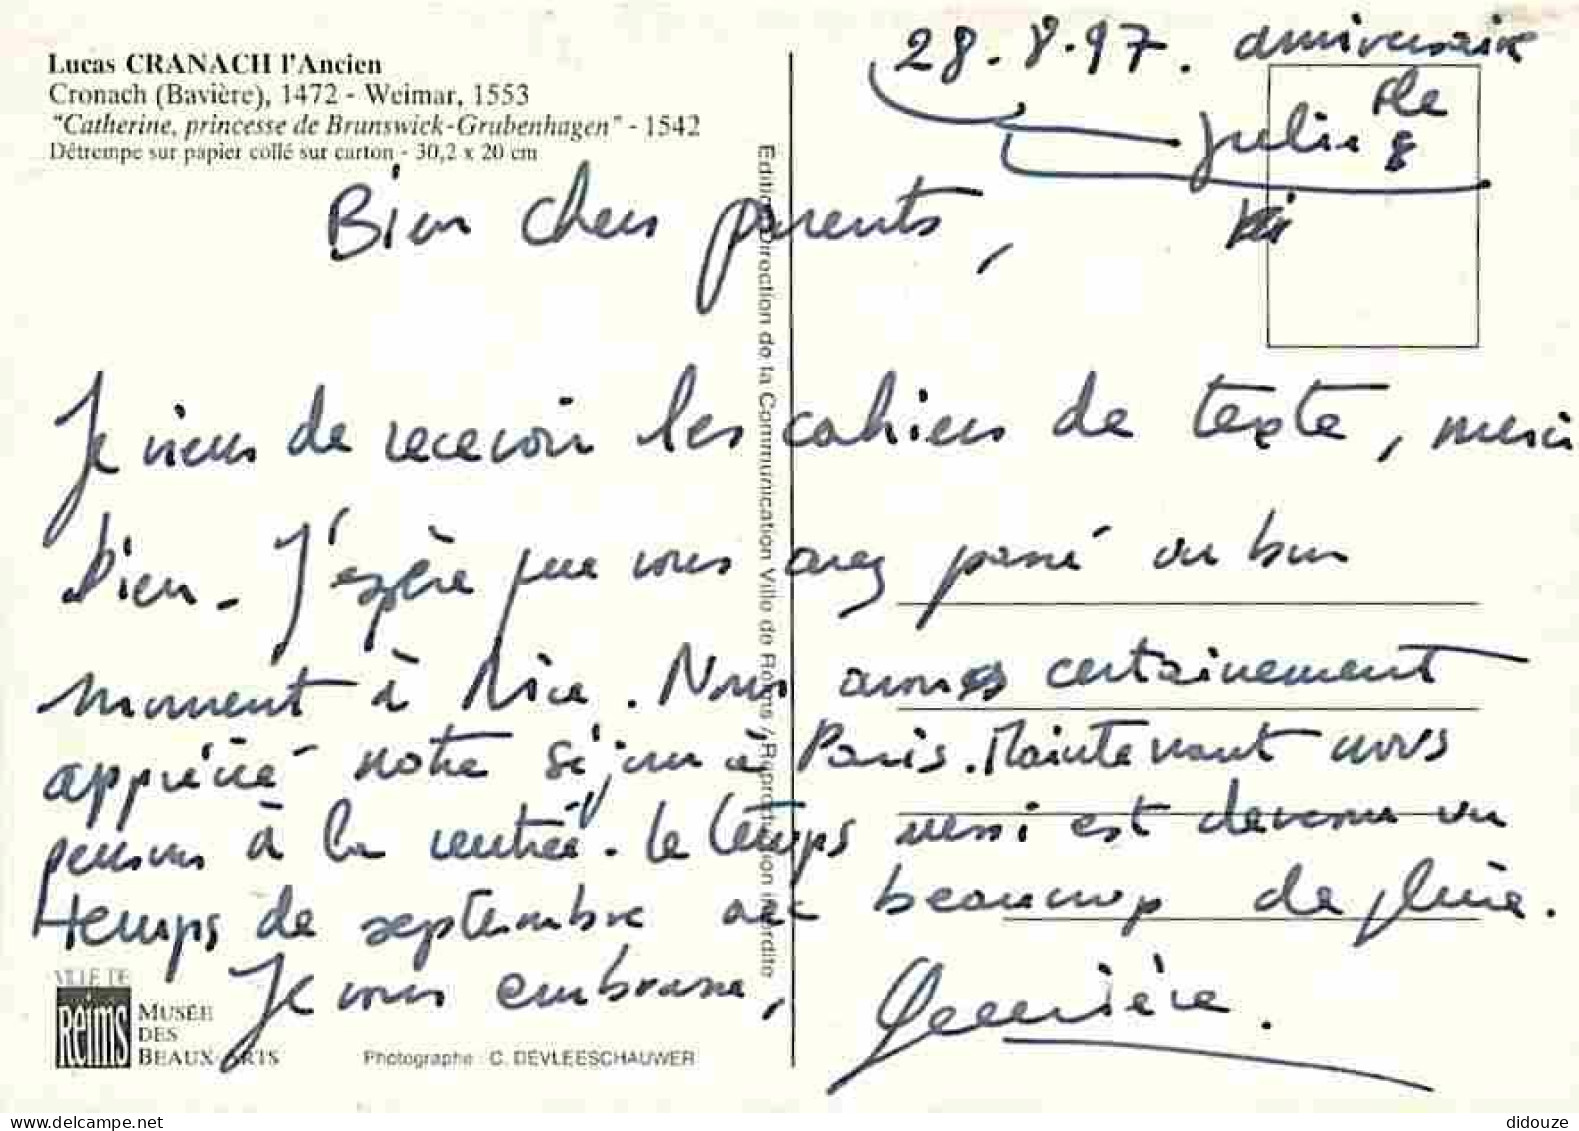 Lucas CRANACH l'Ancien
Cronach (Bavière), 1472 - Weimar, 1553
"Catherine, princesse de Brunswick-Grubenhagen" - 1542
Détrempe sur papier collé sur carton - 30,2 x 20 cm
28.8.97. anniversaire
de
Julie
Bien chers parents,
Je viens de recevoir les cahiers de texte, merci
bien. J'espère que vous avez passé un bon
moment à Nice. Nous avons certainement
apprécié notre séjour à Paris. Maintenant nous
pensons à la rentrée. Le temps aussi est devenu un
temps de septembre avec beaucoup de pluie.
Je vous embrasse,
Edition Direction de la Communication Ville de Reims / Reproduction interdite
VILLE DE
REIMS
MUSÉE
DES
BEAUX-ARTS
Photographe : C. DEVLEESCHAUWER
delcampe.net
didouze